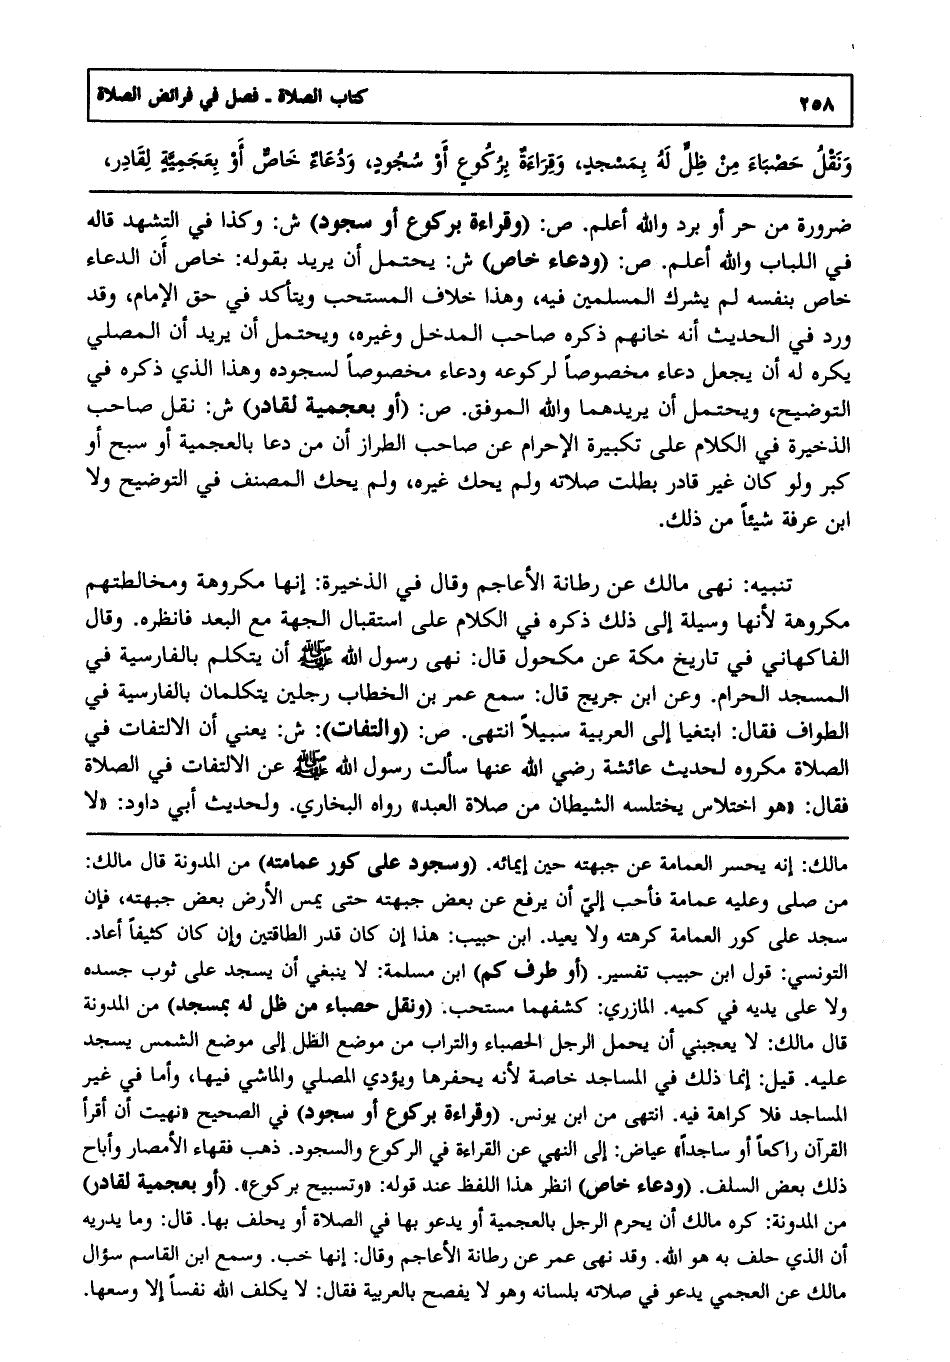 ٢٥٨ كتاب الصلاة ـ فصل في فرائض الصلاة
وَنَقْلُ حَصْبَاءَ مِنْ ظِلٍّ لَهُ بِمَسْجِدٍ، وَقِرَاءَةٌ بِرُكُوعٍ أَوْ سُجُودٍ، وَدُعَاءٌ خَاصٌّ أَوْ بِعَجَمِيَّةٍ لِقَادِرٍ،
ضرورة من حر أو برد والله أعلم. ص: (وقراءة بركوع أو سجود) ش: وكذا في التشهد قاله
في اللباب والله أعلم. ص: (ودعاء خاص) ش: يحتمل أن يريد بقوله: خاص أن الدعاء
خاص بنفسه لم يشرك المسلمين فيه، وهذا خلاف المستحب ويتأكد في حق الإمام، وقد
ورد في الحديث أنه خانهم ذكره صاحب المدخل وغيره، ويحتمل أن يريد أن المصلي
يكره له أن يجعل دعاء مخصوصاً لركوعه ودعاء مخصوصاً لسجوده وهذا الذي ذكره في
التوضيح، ويحتمل أن يريدهما والله الموفق. ص: (أو بعجمية لقادر) ش: نقل صاحب
الذخيرة في الكلام على تكبيرة الإحرام عن صاحب الطراز أن من دعا بالعجمية أو سبح أو
كبر ولو كان غير قادر بطلت صلاته ولم يحك غيره، ولم يحك المصنف في التوضيح ولا
ابن عرفة شيئاً من ذلك.
تنبيه: نهى مالك عن رطانة الأعاجم وقال في الذخيرة: إنها مكروهة ومخالطتهم
مكروهة لأنها وسيلة إلى ذلك ذكره في الكلام على استقبال الجهة مع البعد فانظره. وقال
الفاكهاني في تاريخ مكة عن مكحول قال: نهى رسول الله ﷺ أن يتكلم بالفارسية في
المسجد الحرام. وعن ابن جريج قال: سمع عمر بن الخطاب رجلين يتكلمان بالفارسية في
الطواف فقال: ابتغيا إلى العربية سبيلاً انتهى. ص: (والتفات): ش: يعني أن الالتفات في
الصلاة مكروه لحديث عائشة رضي الله عنها سألت رسول الله ﷺ عن الالتفات في الصلاة
فقال: «هو اختلاس يختلسه الشيطان من صلاة العبد» رواه البخاري. ولحديث أبي داود: «لا
مالك: إنه يحسر العمامة عن جبهته حين إيمائه. (وسجود على كور عمامته) من المدونة قال مالك:
من صلى وعليه عمامة فأحب إليّ أن يرفع عن بعض جبهته حتى يمس الأرض بعض جبهته، فإن
سجد على كور العمامة كرهته ولا يعيد. ابن حبيب: هذا إن كان قدر الطاقتين وإن كان كثيفاً أعاد.
التونسي: قول ابن حبيب تفسير. (أو طرف كم) ابن مسلمة: لا ينبغي أن يسجد على ثوب جسده
ولا على يديه في كميه. المازري: كشفهما مستحب. (ونقل حصباء من ظل له بمسجد) من المدونة
قال مالك: لا يعجبني أن يحمل الرجل الحصباء والتراب من موضع الظل إلى موضع الشمس يسجد
عليه. قيل: إنما ذلك في المساجد خاصة لأنه يحفرها ويؤدي المصلي والماشي فيها، وأما في غير
المساجد فلا كراهة فيه. انتهى من ابن يونس. (وقراءة بركوع أو سجود) في الصحيح «نهيت أن أقرأ
القرآن راكعاً أو ساجداً» عياض: إلى النهي عن القراءة في الركوع والسجود. ذهب فقهاء الأمصار وأباح
ذلك بعض السلف. (ودعاء خاص) انظر هذا اللفظ عند قوله: «وتسبيح بركوع». (أو بعجمية لقادر)
من المدونة: كره مالك أن يحرم الرجل بالعجمية أو يدعو بها في الصلاة أو يحلف بها. قال: وما يدريه
أن الذي حلف به هو الله. وقد نهى عمر عن رطانة الأعاجم وقال: إنها خب. وسمع ابن القاسم سؤال
مالك عن العجمي يدعو في صلاته بلسانه وهو لا يفصح بالعربية فقال: لا يكلف الله نفساً إلا وسعها.